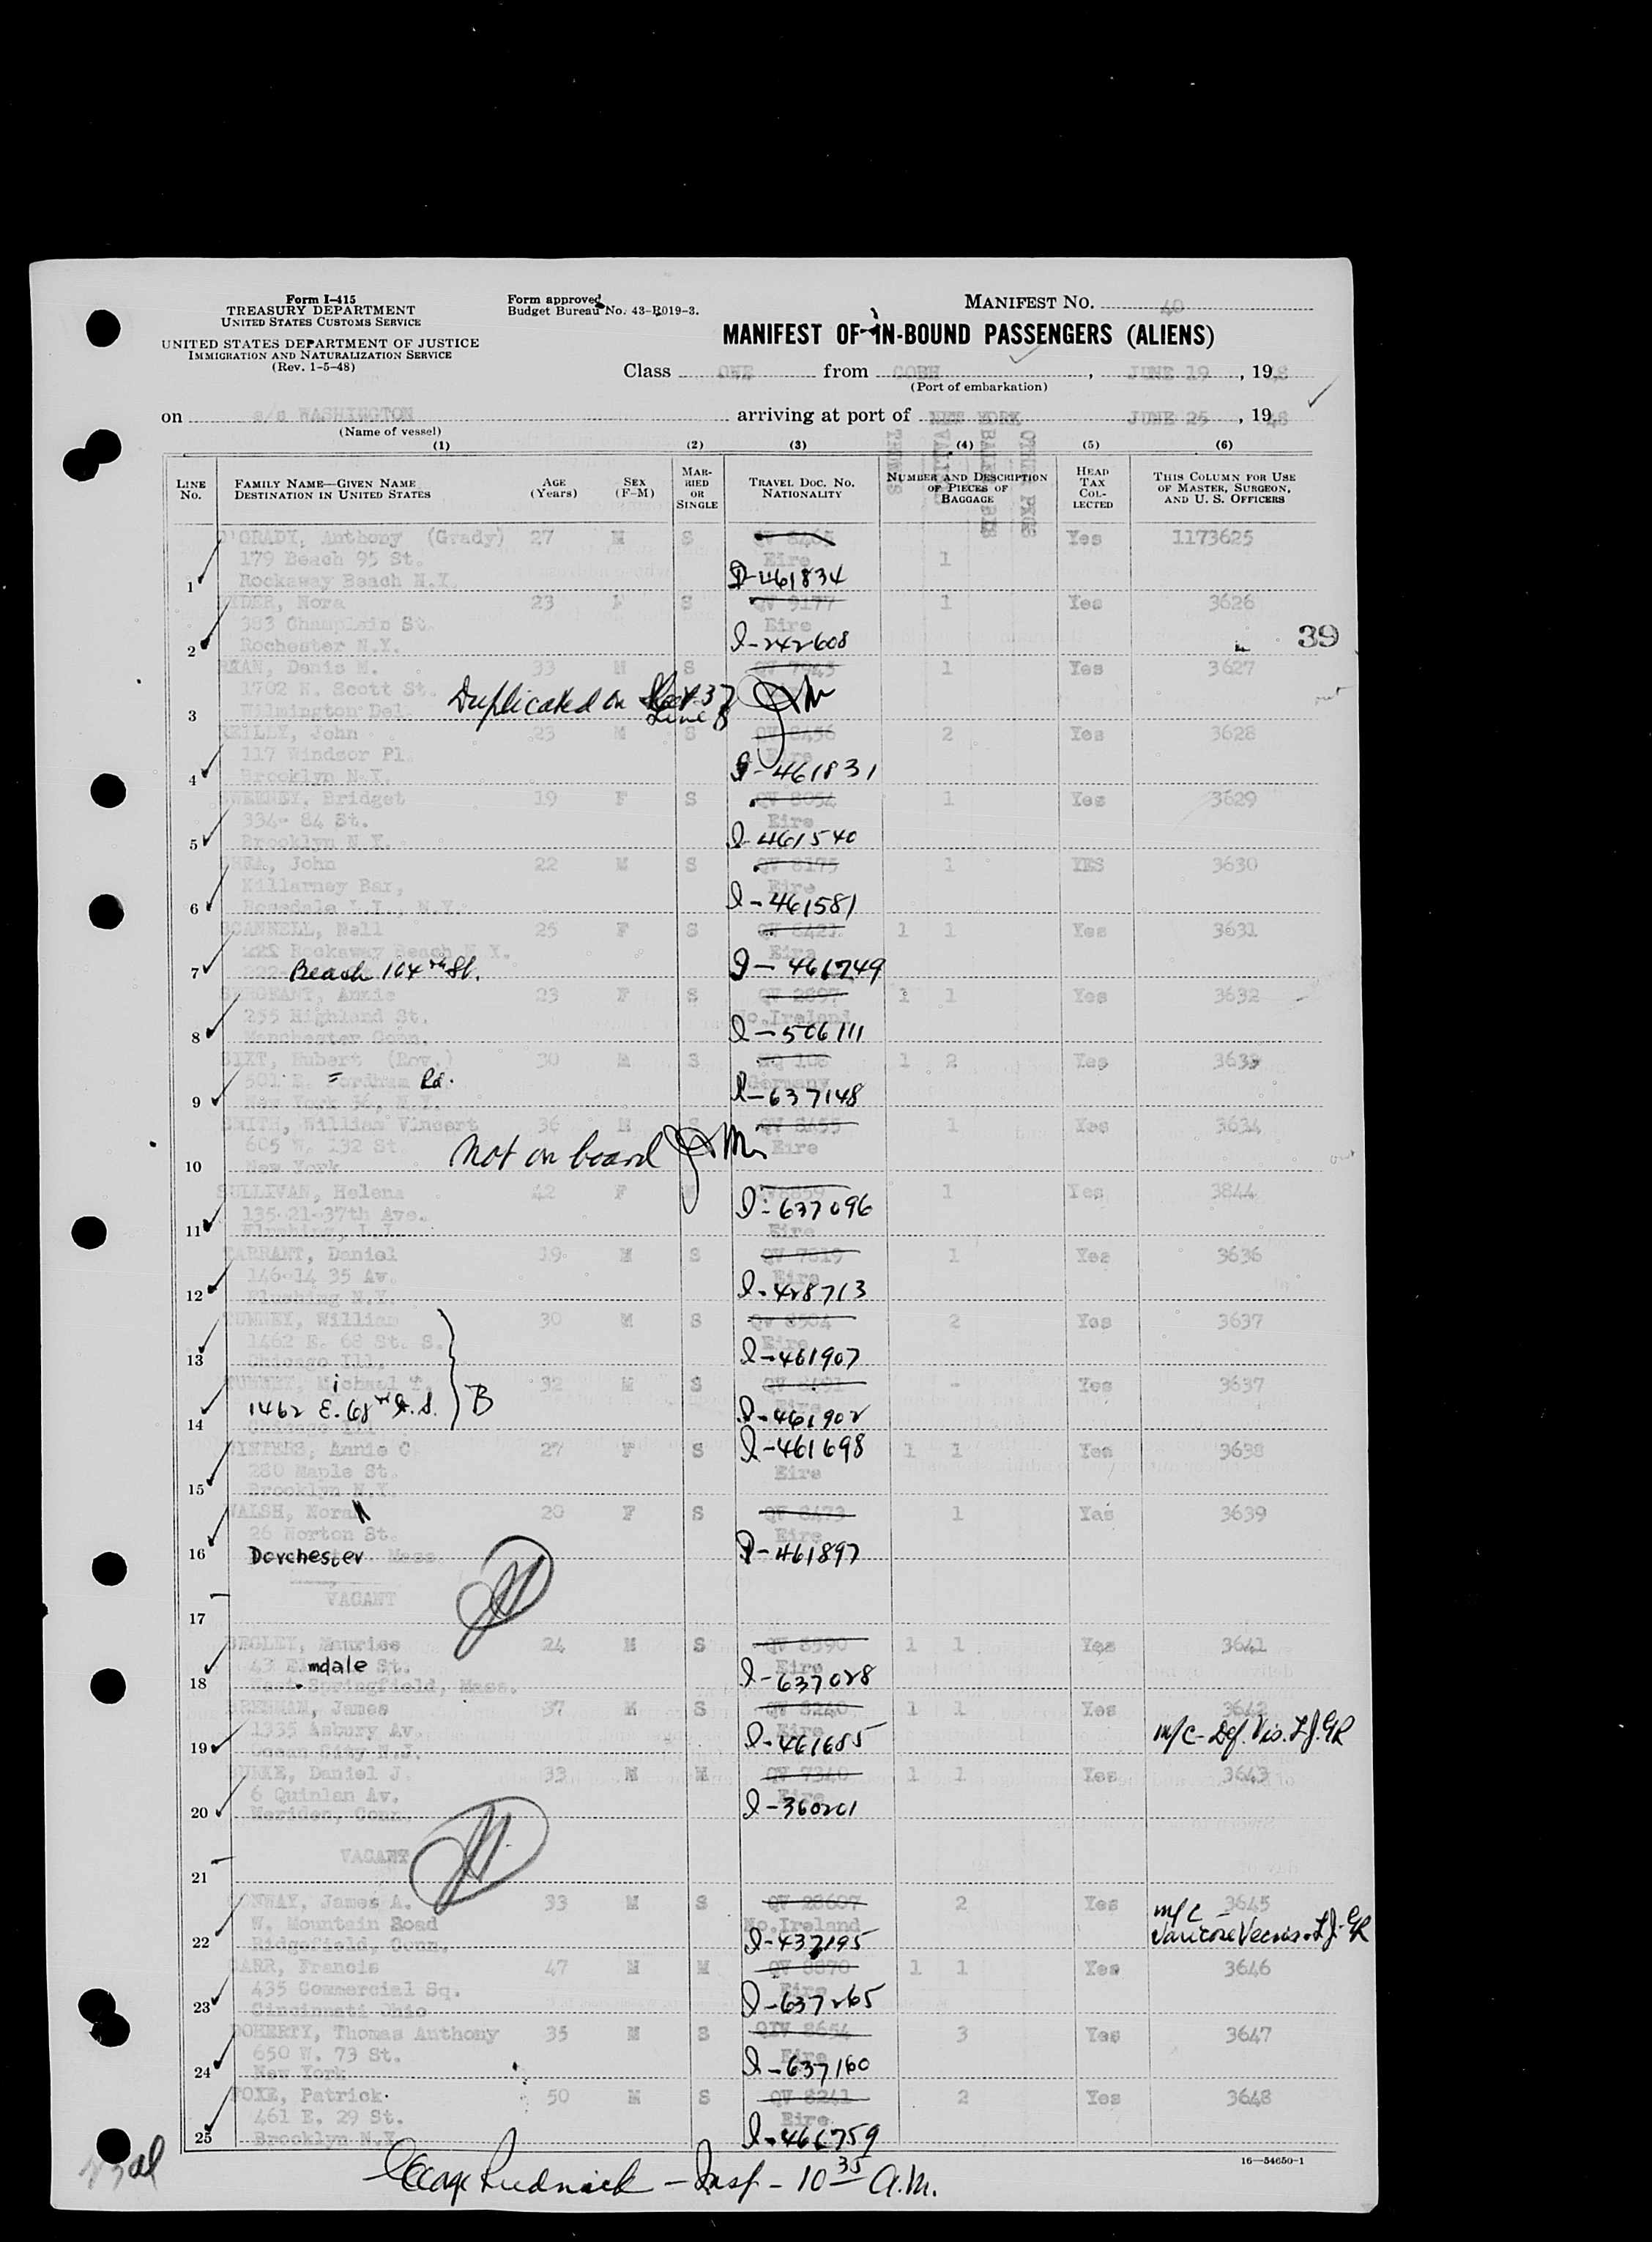 Form I-415
TREASURY DEPARTMENT
UNITED STATES CUSTOMS SERVICE
UNITED STATES DEPARTMENT OF JUSTICE
IMMIGRATION AND NATURALIZATION SERVICE
(Rev. 1-5-48)
Form approved
Budget Bureau No. 43-R019-3.
MANIFEST NO. 40
MANIFEST OF IN-BOUND PASSENGERS (ALIENS)
Class ONE from COBH, JUNE 19, 1948
(Port of embarkation)
on s/s WASHINGTON arriving at port of NEW YORK JUNE 25, 1948
(Name of vessel)
(1) (2) (3) (4) (5) (6)
LINE NO. FAMILY NAME—GIVEN NAME DESTINATION IN UNITED STATES AGE (Years) SEX (F-M) MARRIED OR SINGLE TRAVEL DOC. NO. NATIONALITY NUMBER AND DESCRIPTION OF PIECES OF BAGGAGE HEAD TAX COLLECTED THIS COLUMN FOR USE OF MASTER, SURGEON, AND U. S. OFFICERS
TRUNKS VALISES OTHER PKGS
O'GRADY, Anthony (Grady) 27 M S QV 8465 Yes 1173625
179 Beach 95 St. Eire 1
1 Rockaway Beach N.Y. I-461834
RYDER, Nora 23 F S QV 9177 1 Yes 3626
383 Champlain St. Eire
2 Rochester N.Y. I-242608
39
RYAN, Denis M. 33 M S QV 7943 1 Yes 3627
1702 N. Scott St. Duplicated on Sheet 37
3 Wilmington Del. Line 8
REILLY, John 23 M S QV 8456 2 Yes 3628
117 Windsor Pl. Eire
4 Brooklyn N.Y. I-461831
SWEENEY, Bridget 19 F S QV 8054 1 Yes 3629
334- 84 St. Eire
5 Brooklyn N.Y. I-461540
SHEA, John 22 M S QV 8175 1 YES 3630
Killarney Bar, Eire
6 Rosedale L.I., N.Y. I-461581
SCANNELL, Nell 25 F S QV 8421 1 1 Yes 3631
Rockaway Beach N.Y. Eire
7 222 Beach 104th St. I-461749
SERGEANT, Annie 23 F S QV 2897 1 1 Yes 3632
255 Highland St. No.Ireland
8 Manchester Conn. I-506111
SIXT, Hubert (Rev.) 30 M S NQ 108 1 2 Yes 3633
501 E. Fordham Rd. Germany
9 New York 56, N.Y. I-637148
SMITH, William Vincent 36 M S QV 8455 1 Yes 3634
605 W. 132 St. Not on board Eire
10 New York
SULLIVAN, Helena 42 F M QV8859 1 Yes 3844
135-21-37th Ave. I-637096
11 Flushing, L.I. Eire
TARRANT, Daniel 19 M S QV 7819 1 Yes 3636
146-14 35 Av. Eire
12 Flushing N.Y. I-428713
TUMNEY, William 30 M S QV 8504 2 Yes 3637
1462 E. 68 St. S. Eire
13 Chicago Ill. I-461907
TUMNEY, Michael T. 32 M S QV 8491 - Yes 3637
1462 E. 68th St. S. B Eire
14 Chicago Ill I-461902
WINTERS, Annie C. 27 F S I-461698 1 1 Yes 3638
280 Maple St. Eire
15 Brooklyn N.Y.
WALSH, Nora 20 F S QV 8473 1 Yes 3639
26 Norton St. Eire
16 Dorchester Mass. I-461897
VACANT
17
BEGLEY, Maurice 24 M S QV 8590 1 1 Yes 3641
43 Elmdale St. Eire
18 West Springfield, Mass. I-637028
BRENNAN, James 37 M S QV 8240 1 1 Yes 3642
1335 Asbury Av. Eire m/c-Def. Vis. L.J. GR
19 Ocean City N.J. I-461685
BURKE, Daniel J. 33 M M QV 7340 1 1 Yes 3643
6 Quinlan Av. Eire
20 Meriden, Conn. I-360201
VACANT
21
CONWAY, James A. 33 M S QV 28607 2 Yes 3645
W. Mountain Road No.Ireland m/c
22 Ridgefield, Conn. I-437195 Varicose Veins L.J. GR
CARR, Francis 47 M M QV 8870 1 1 Yes 3646
435 Commercial Sq. Eire
23 Cincinnati Ohio I-637265
DOHERTY, Thomas Anthony 35 M S QIV 8654 3 Yes 3647
650 W. 73 St. Eire
24 New York I-637160
FOXE, Patrick 50 M S QV 8241 2 Yes 3648
461 E. 29 St. Eire
25 Brooklyn N.Y. I-461759
16—54650-1
George Rudnick - Insp - 10 35 A.M.